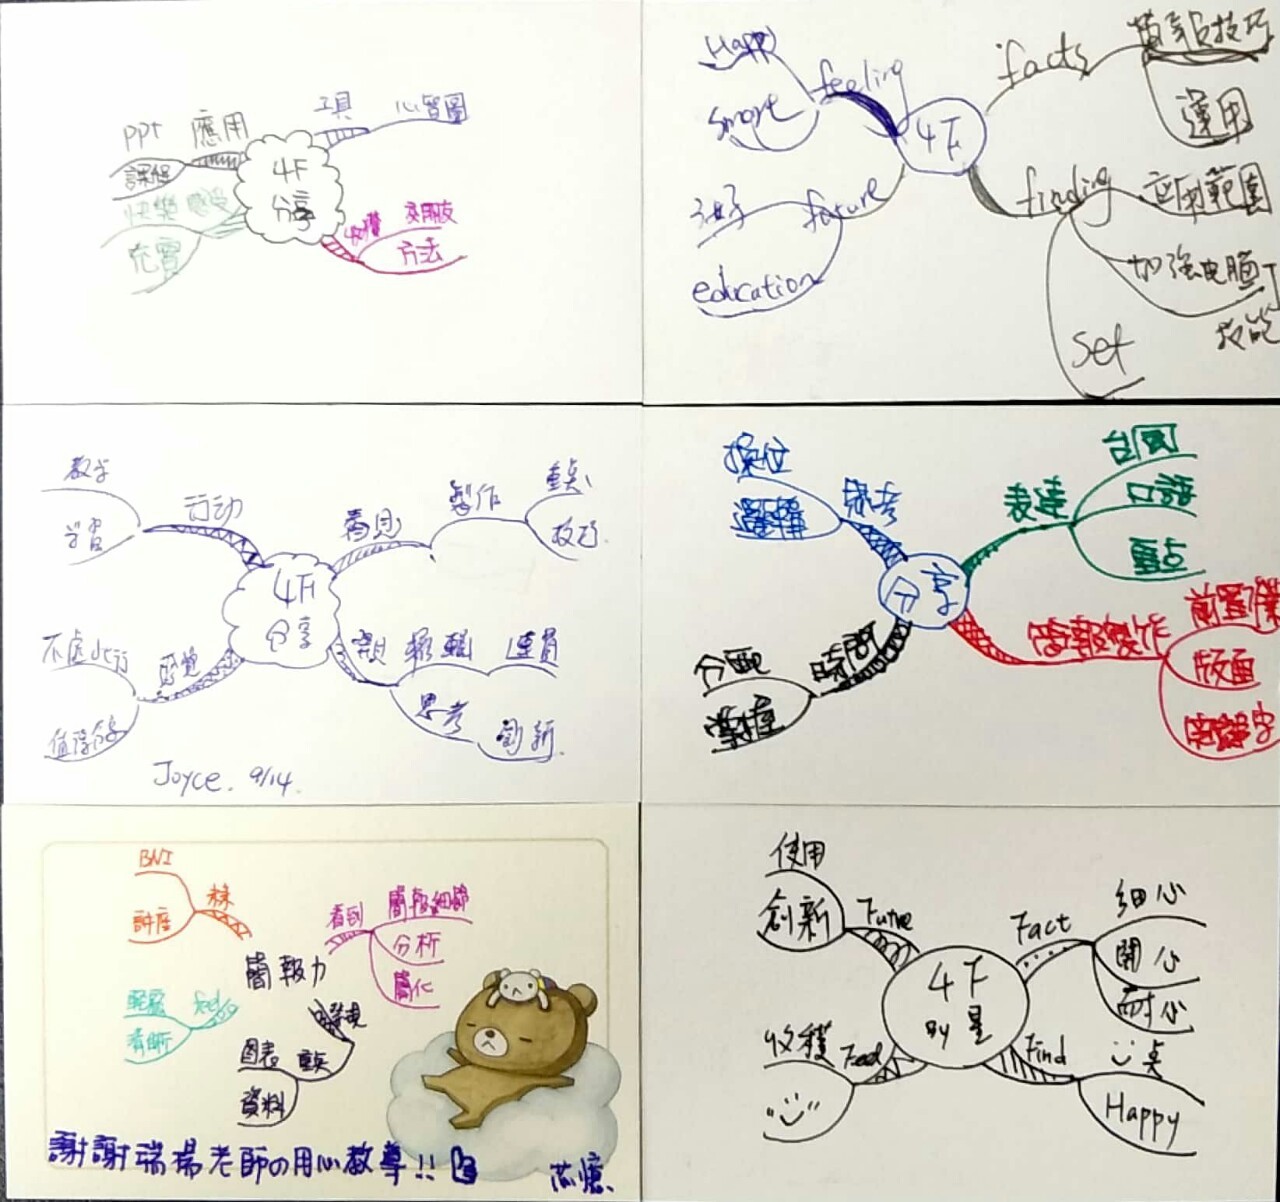 ppt
應用
課程
快樂
感受
充實
4F
分享
工具
心智圖
收獲
交朋友
方法
Happy
smart
feeling
future
education
4F
facts
運用
finding
應用範圍
加強電腦
技能
Set
教学
学習
行动
看見
製作
重点
技巧
4F
分享
不虛此行
感覺
值得分享
邏輯
連貫
思考
創新
Joyce. 9/14.
換位
邏輯
思考
表達
台風
口語
重点
分享
分配
掌握
時間
簡報製作
前置作業
版面
BNI
講座
看到
簡報細節
分析
簡化
簡報力
feel
清晰
發現
圖表
重点
資料
謝謝瑞揚老師の用心教導!!
使用
創新
Future
Fact
細心
開心
耐心
4F
by 星
收穫
Feed
Find
桌
Happy